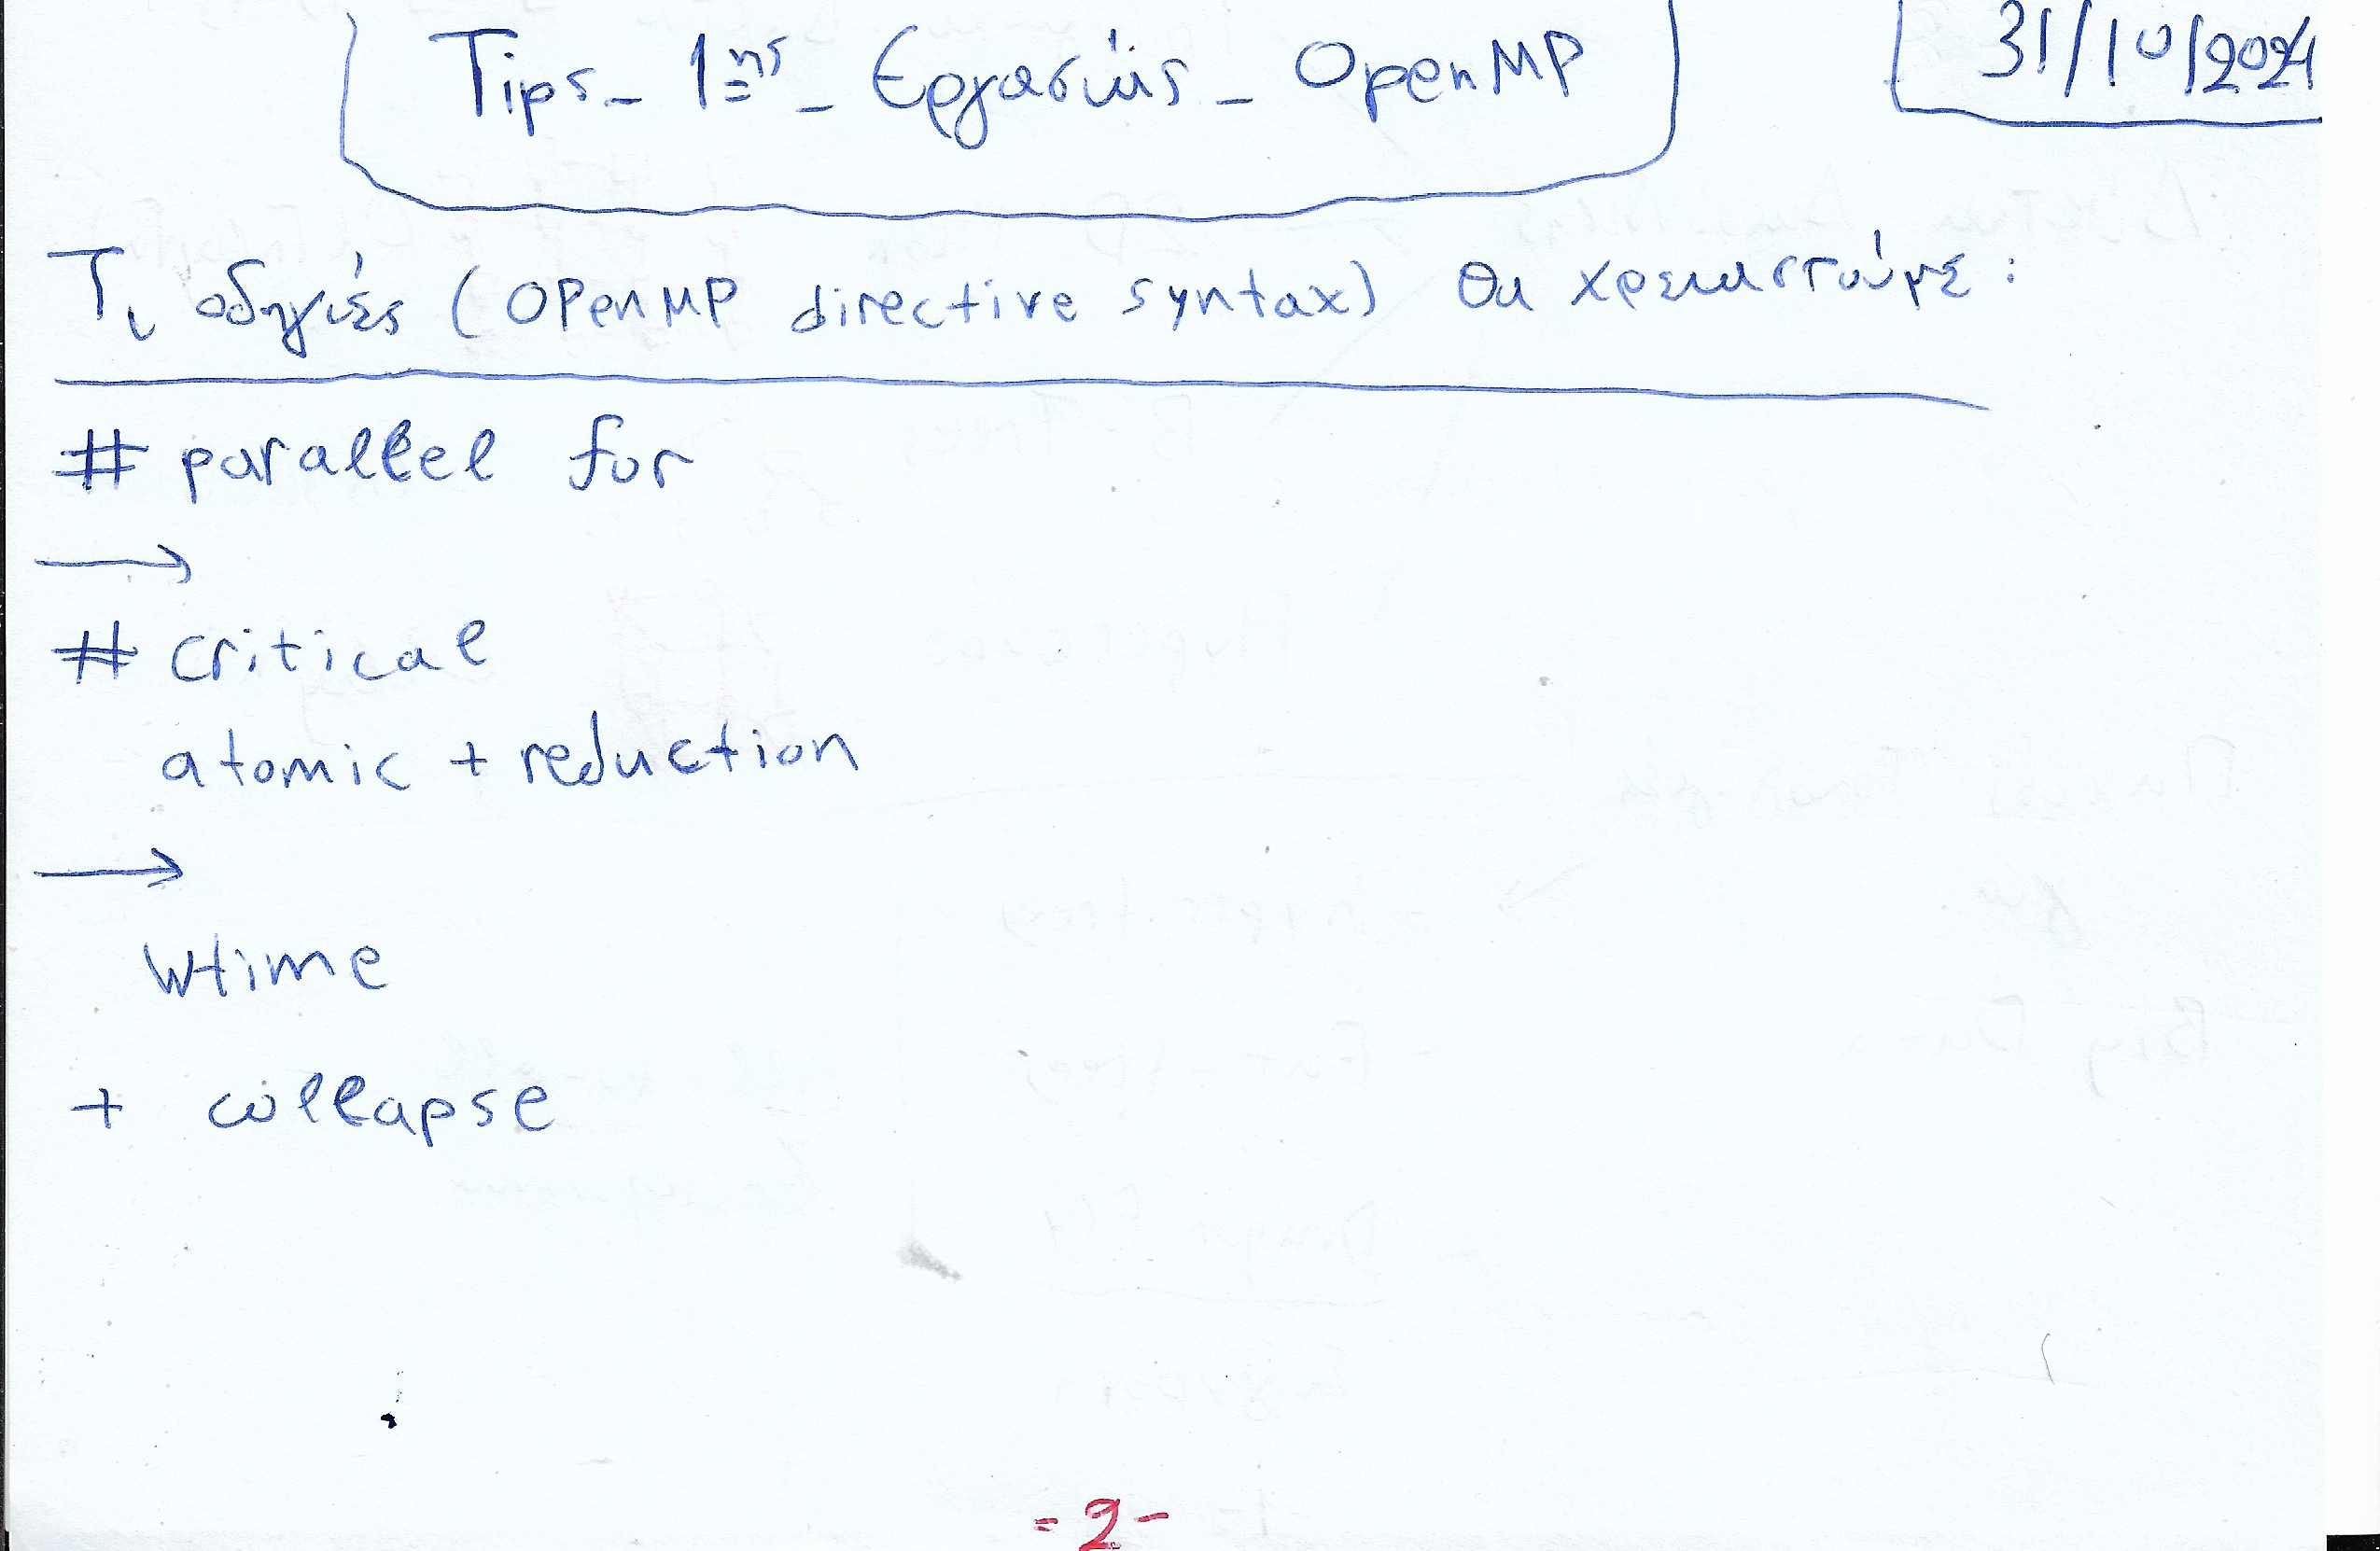 Tips - 1ης - Εργασίας - OpenMP
31/10/2024
Τι οδηγίες (OPenMP directive syntax) θα χρειαστούμε:
# parallel for
→
# critical
atomic + reduction
→
wtime
+ collapse
- 2 -